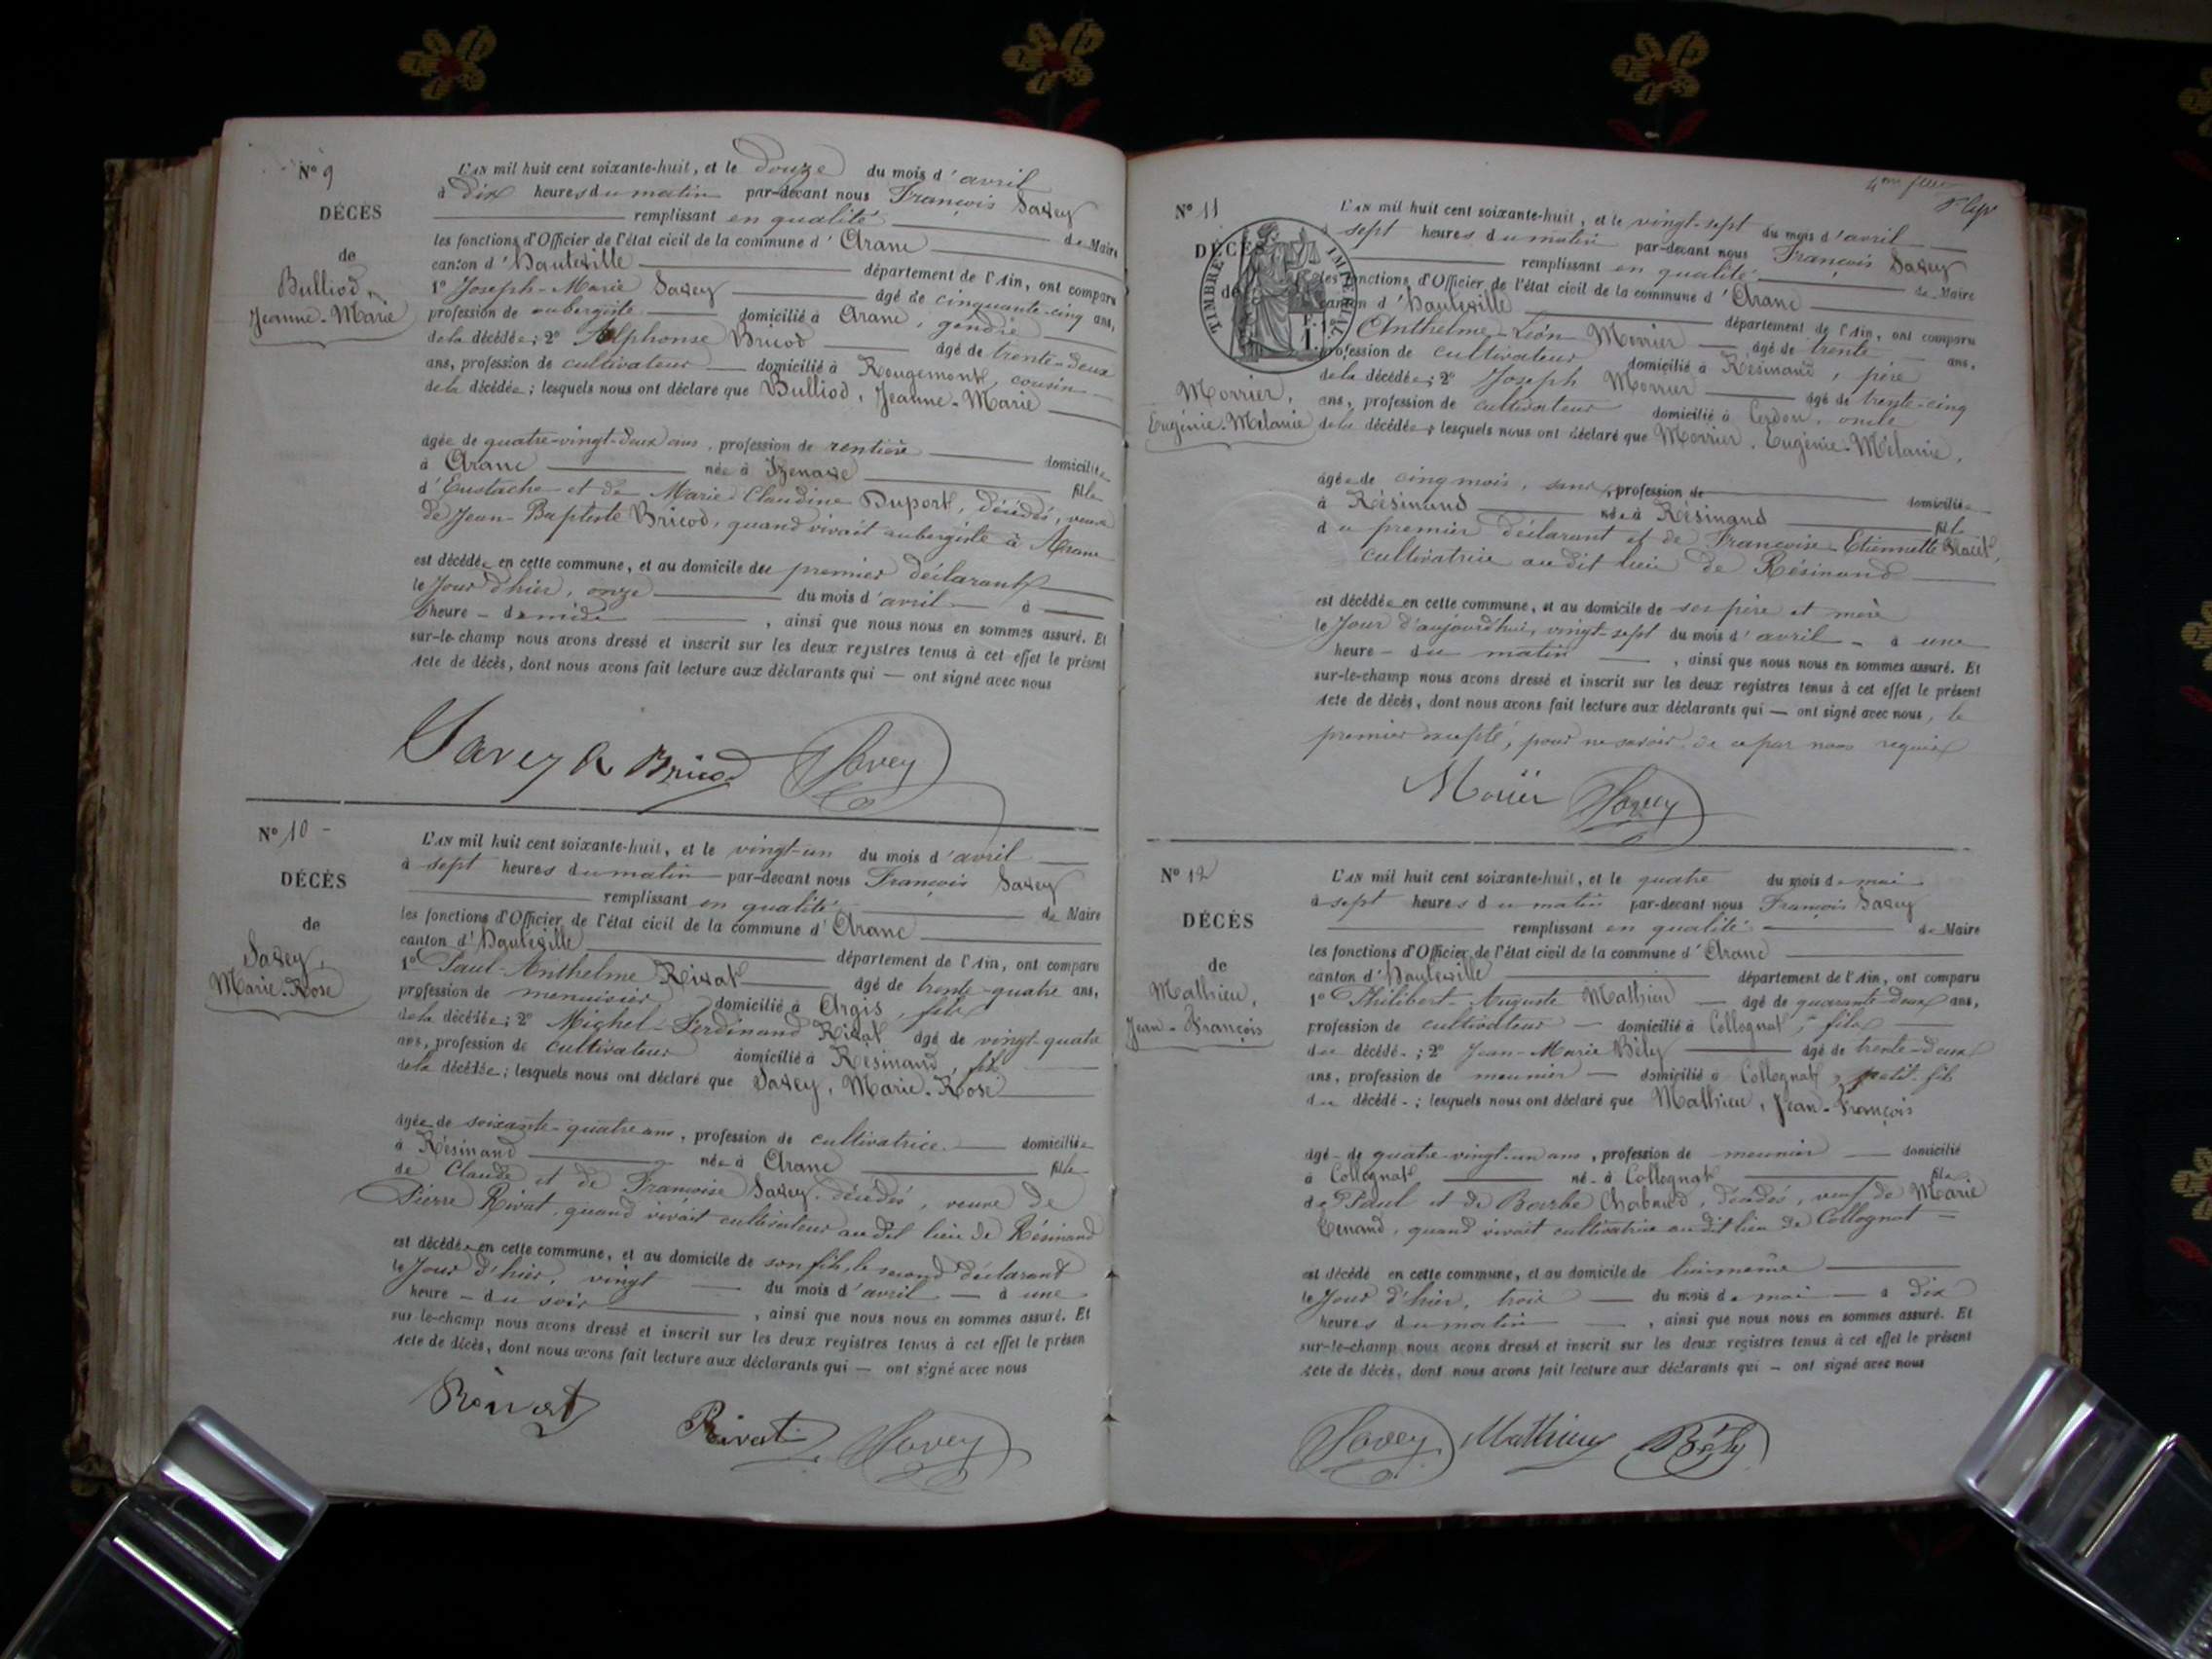 N° 9
DÉCÈS
de
Bulliod,
Jeanne-Marie
L'AN mil huit cent soixante-huit, et le douze du mois d'avril
à dix heures du matin par-devant nous François Savey
remplissant en qualité de Maire
les fonctions d'Officier de l'état civil de la commune d'Aranc
canton d'Hauteville département de l'Ain, ont comparu
1° Joseph-Marie Savey âgé de cinquante-cinq ans,
profession de aubergiste domicilié à Aranc, gendre
de la décédée; 2° Alphonse Bricod âgé de trente-deux
ans, profession de cultivateur domicilié à Rougemont, cousin
de la décédée; lesquels nous ont déclaré que Bulliod, Jeanne-Marie
âgée de quatre-vingt-deux ans, profession de rentière domiciliée
à Aranc née à Izenave fille
d'Eustache et de Marie-Claudine Duport, décédés, veuve
de Jean-Baptiste Bricod, quand vivait aubergiste à Aranc
est décédée en cette commune, et au domicile du premier déclarant
le Jour d'hier, onze du mois d'avril à
heure - de midi, ainsi que nous nous en sommes assuré. Et
sur-le-champ nous avons dressé et inscrit sur les deux registres tenus à cet effet le présent
Acte de décès, dont nous avons fait lecture aux déclarants qui — ont signé avec nous
Savey Bricod Savey
N° 10 -
DÉCÈS
de
Savey,
Marie-Rose
L'AN mil huit cent soixante-huit, et le vingt-un du mois d'avril
à sept heures du matin par-devant nous François Savey
remplissant en qualité de Maire
les fonctions d'Officier de l'état civil de la commune d'Aranc
canton d'Hauteville département de l'Ain, ont comparu
1° Paul-Anthelme Rivat âgé de trente-quatre ans,
profession de menuisier domicilié à Argis, fils
de la décédée; 2° Michel-Ferdinand Rivat âgé de vingt-quatre
ans, profession de cultivateur domicilié à Résinand, fils
de la décédée; lesquels nous ont déclaré que Savey, Marie-Rose
âgée de soixante-quatre ans, profession de cultivatrice domiciliée
à Résinand née à Aranc fille
de Claude et de Françoise Savey, décédés, veuve de
Pierre Rivat, quand vivait cultivateur au dit lieu de Résinand
est décédée en cette commune, et au domicile de son fils, le second déclarant
le Jour d'hier, vingt du mois d'avril — à une
heure - du soir, ainsi que nous nous en sommes assuré. Et
sur-le-champ nous avons dressé et inscrit sur les deux registres tenus à cet effet le présen
Acte de décès, dont nous avons fait lecture aux déclarants qui — ont signé avec nous
Rivat Rivat Savey
4me
N° 11
DÉCÈS
de
TIMBRE IMPÉRIAL
Morrier,
Eugénie-Mélanie
L'AN mil huit cent soixante-huit, et le vingt-sept du mois d'avril
sept heures du matin par-devant nous François Savey
remplissant en qualité de Maire
les fonctions d'Officier de l'état civil de la commune d'Aranc
canton d'Hauteville département de l'Ain, ont comparu
Anthelme-Léon Morrier âgé de trente ans,
profession de cultivateur domicilié à Résinand, père
de la décédée; 2° Joseph Morrier âgé de trente-cinq
ans, profession de cultivateur domicilié à Cerdon, oncle
de la décédée; lesquels nous ont déclaré que Morrier, Eugénie-Mélanie,
âgée de cinq mois, sans profession de domiciliée
à Résinand née à Résinand fille
du premier déclarant et de Françoise-Etiennette
cultivatrice au dit lieu de Résinand
est décédée en cette commune, et au domicile de ses père et mère
le Jour d'aujourd'hui, vingt-sept du mois d'avril - à une
heure - du matin, ainsi que nous nous en sommes assuré. Et
sur-le-champ nous avons dressé et inscrit sur les deux registres tenus à cet effet le présent
Acte de décès, dont nous avons fait lecture aux déclarants qui — ont signé avec nous, le
premier excepté, pour ne savoir, de ce par nous requis
Morier Savey
N° 12
DÉCÈS
de
Mathieu,
Jean-François
L'AN mil huit cent soixante-huit, et le quatre du mois de mai
à sept heures du matin par-devant nous François Savey
remplissant en qualité de Maire
les fonctions d'Officier de l'état civil de la commune d'Aranc
canton d'Hauteville département de l'Ain, ont comparu
1° Philibert-Auguste Mathieu âgé de quarante-deux ans,
profession de cultivateur domicilié à Collognat, fils
du décédé; 2° Jean-Marie Bély âgé de trente-deux
ans, profession de meunier domicilié à Collognat, petit-fils
du décédé; lesquels nous ont déclaré que Mathieu, Jean-François
âgé de quatre-vingt-un ans, profession de meunier domicilié
à Collognat né à Collognat fils
de Paul et de Barbe Chabaud, décédés, veuf de Marie
Tenand, quand vivait cultivatrice au dit lieu de Collognat
est décédé en cette commune, et au domicile de lui-même
le Jour d'hier, trois du mois de mai — à dix
heures du matin, ainsi que nous nous en sommes assuré. Et
sur-le-champ nous avons dressé et inscrit sur les deux registres tenus à cet effet le présent
Acte de décès, dont nous avons fait lecture aux déclarants qui — ont signé avec nous
Savey Mathieu Bély